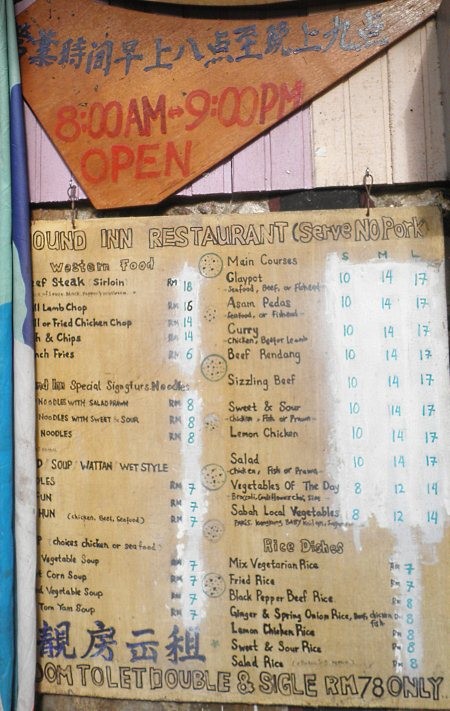 營業時間早上八点至晚上九点
8:00AM-9:00PM
OPEN
OUND INN RESTAURANT (Serve NO Pork
Western Food
ef Steak (Sirloin) RM 18
ll Lamb Chop RM 16
ll or Fried Chicken Chop RM 14
h & Chips RM 14
nch Fries RM 6
nd Inn Special Signature Noodles
NOODLES WITH SALAD PRAWN RM 8
NOODLES WITH SWEET & SOUR RM 8
NOODLES RM 8
D/SOUP/WATTAN/WET STYLE
DLES RM 7
FUN RM 7
HUN (chicken, Beef, Seafood) RM 7
P (choices chicken or seafood)
Vegetable Soup RM 7
t Corn Soup RM 7
d Vegetable Soup RM 7
Tom Yam Soup RM 7
Main Courses S M L
Claypot 10 14 17
Seafood, Beef, or Fishead
Asam Pedas 10 14 17
Seafood, or Fishead
Curry 10 14 17
Chicken, Beef or Lamb
Beef Rendang 10 14 17
Sizzling Beef 10 14 17
Sweet & Sour 10 14 17
Chicken, Fish or Prawn
Lemon Chicken 10 14 17
Salad 10 14 17
Chicken, Fish or Prawn
Vegetables Of The Day 8 12 14
Sabah Local Vegetables 8 12 14
Rice Dishes
Mix Vegetarian Rice RM 7
Fried Rice RM 7
Black Pepper Beef Rice RM 8
Ginger & Spring Onion Rice, Beef, chicken, fish RM 8
Lemon Chicken Rice RM 8
Sweet & Sour Rice RM 8
Salad Rice RM 8
靚房出租
OOM TO LET DOUBLE & SIGLE RM78 ONLY